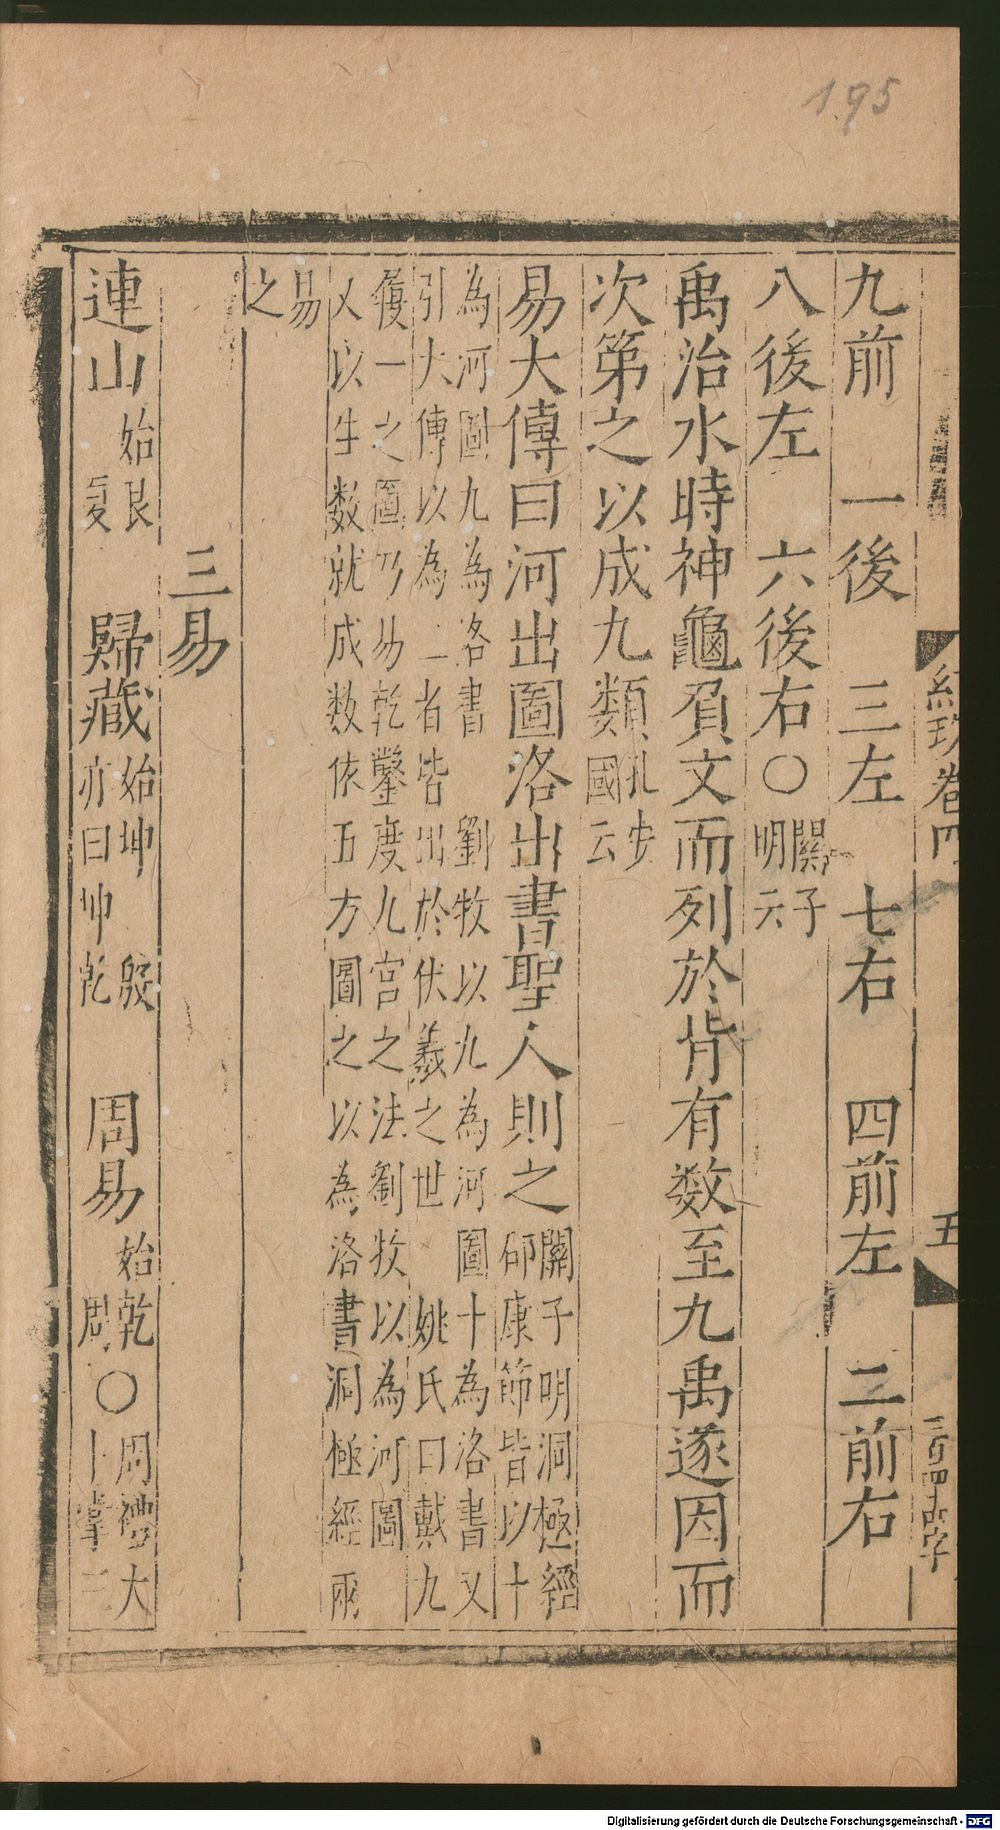 195
紀玫卷四
五
九前　一後　三左　七右　四前左　二前右
八後左　六後右〇關子明云
禹治水時神龜負文而列於背有数至九禹遂因而
次第之以成九類孔安國云
易大傳曰河出圖洛出書聖人則之關子明洞極經
邵康節皆以十
為河圖九為洛書　劉牧以九為河圖十為洛書又
引大傳以為二者皆出於伏羲之世　姚氏曰戴九
履一之圖乃易乾鑿度九宮之法劉牧以為河圖
又以生数就成数依五方圖之以為洛書洞極經兩
易
之
三易
連山始艮
夏　歸藏始坤　殷
亦曰坤乾　周易始乾
周〇周禮大
卜掌三
Digitalisierung gefördert durch die Deutsche Forschungsgemeinschaft - DFG